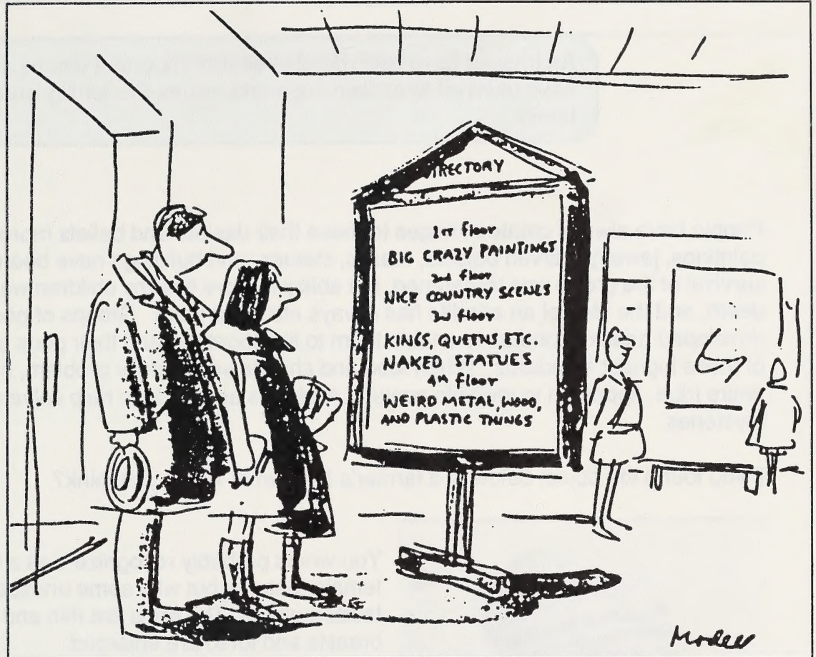 DIRECTORY
1st floor
BIG CRAZY PAINTINGS
2nd floor
NICE COUNTRY SCENES
3rd floor
KINGS, QUEENS, ETC.
NAKED STATUES
4th floor
WEIRD METAL, WOOD,
AND PLASTIC THINGS
Modell